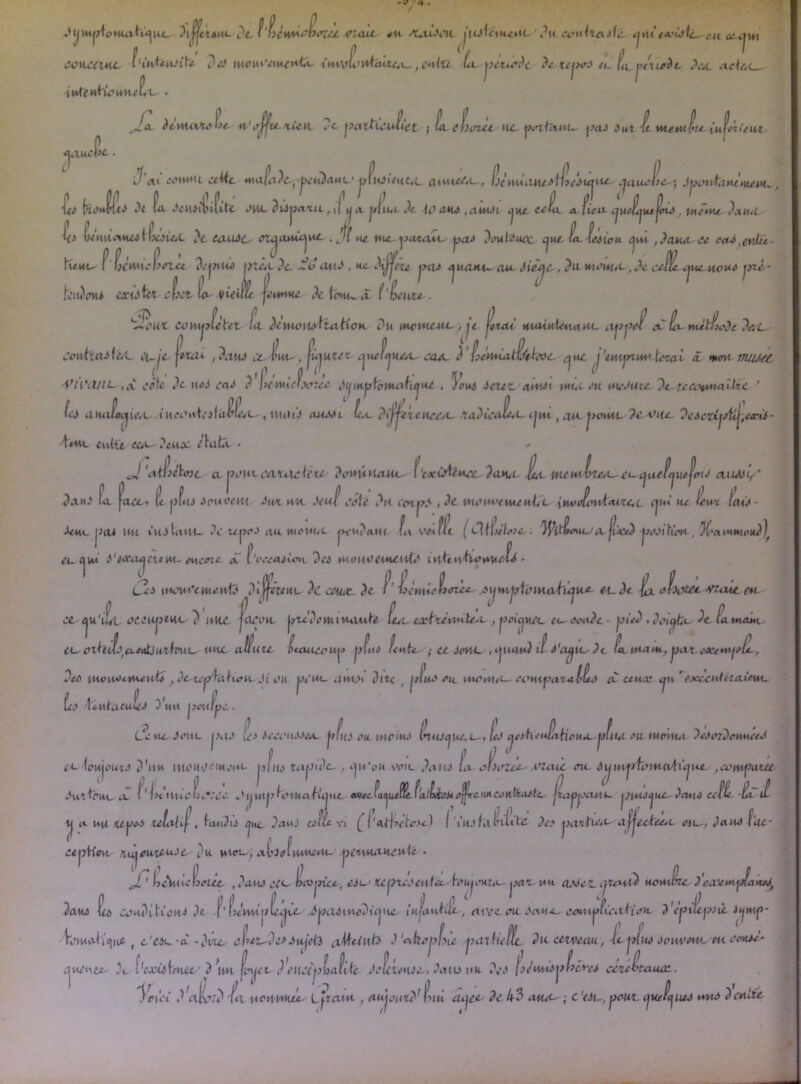 - 374 -
Symptomatique. Diffèrent de l'hémichorée vraie en raison justement du contraste qui existe en ce qui
concerne l'intensité des mouvements involontaires, entre la période de repos et la période des actes
intentionnels.
La démarche n'offre rien de particulier ; la chorée ne portant pas sur le membre inférieur
gauche.
J'ai connu cette malade, pendant plusieurs années, hémianesthésique gauche ; spontanément,
les troubles de la sensibilité ont disparu, il y a plus de 10 ans, ainsi que cela a lieu quelquefois, même dans
les hémianesthésies de cause organique. Il ne me paraît pas douteux que la lésion qui, dans ce cas, entre-
tient l'hémichorée depuis près de 20 ans, ne diffère pas quant au siège, du moins, de celle que nous pré-
tendons exister chez la vieille femme de tout à l'heure.
Pour compléter la démonstration du moment, je ferai maintenant appel à la méthode des
contrastes et je ferai, dans ce but, figurer quelques cas d'hémiathétose que j'emprunterai à mon musée
vivant, à côté de nos cas d'hémichorée symptomatique. Vous serez ainsi mis en mesure de reconnaître
les analogies incontestables, mais aussi les différences radicales qui, au point de vue descriptif, exis-
tent entre ces deux états.
L'athétose a pour caractère dominant l'existence dans les membres et quelquefois aussi
dans la face, le plus souvent sur un seul côté du corps, de mouvements involontaires qui ne leur lais-
sent pas un instant de repos au moins pendant la veille (Athétose : Without a fixed position, Hammond),
et qui s'exagèrent encore à l'occasion des mouvements intentionnels.
Ces mouvements diffèrent de ceux de l'hémichorée symptomatique et de la chorée vraie en
ce qu'ils occupent d'une façon prédominante les extrémités, poignet et coude - pied, doigts de la main
et orteils, et ont surtout une allure beaucoup plus lente ; ce sont, quand il s'agit de la main, par exemple,
des mouvements, de reptation si on peut ainsi dire, plus ou moins comparables à ceux qu'exécuteraient
les tentacules d'un poulpe.
Ce ne sont pas les secousses plus ou moins brusques, les gesticulations plus ou moins désordonnées
et toujours d'un mouvement plus rapide, qu'on voit dans la chorée vraie ou symptomatique, comparée
surtout à l'hémichorée symptomatique avec laquelle l'athétose offre un contraste frappant puisque dans celle-là il
y a un repos relatif, tandis que dans celle-ci (l'athétose) l'instabilité des parties affectées est, dans l'ac-
ception rigoureuse du mot, absolument permanente.
L'hémichorée, dans cet hospice, est représentée toujours par un assez grand nombre d'exemplaires,
dans les conditions de l'hémiplégie spasmodique infantile, avec ou sans complication d'épilepsie symp-
tomatique, c'est-à-dire chez des sujets atteints d'atrophie partielle du cerveau, le plus souvent en consé-
quence de l'existence d'un foyer d'encéphalite scléreuse, dans un des hémisphères cérébraux.
Voici d'abord la nommée Grain, aujourd'hui âgée de 43 ans ; c'est, pour quelques uns d'entre